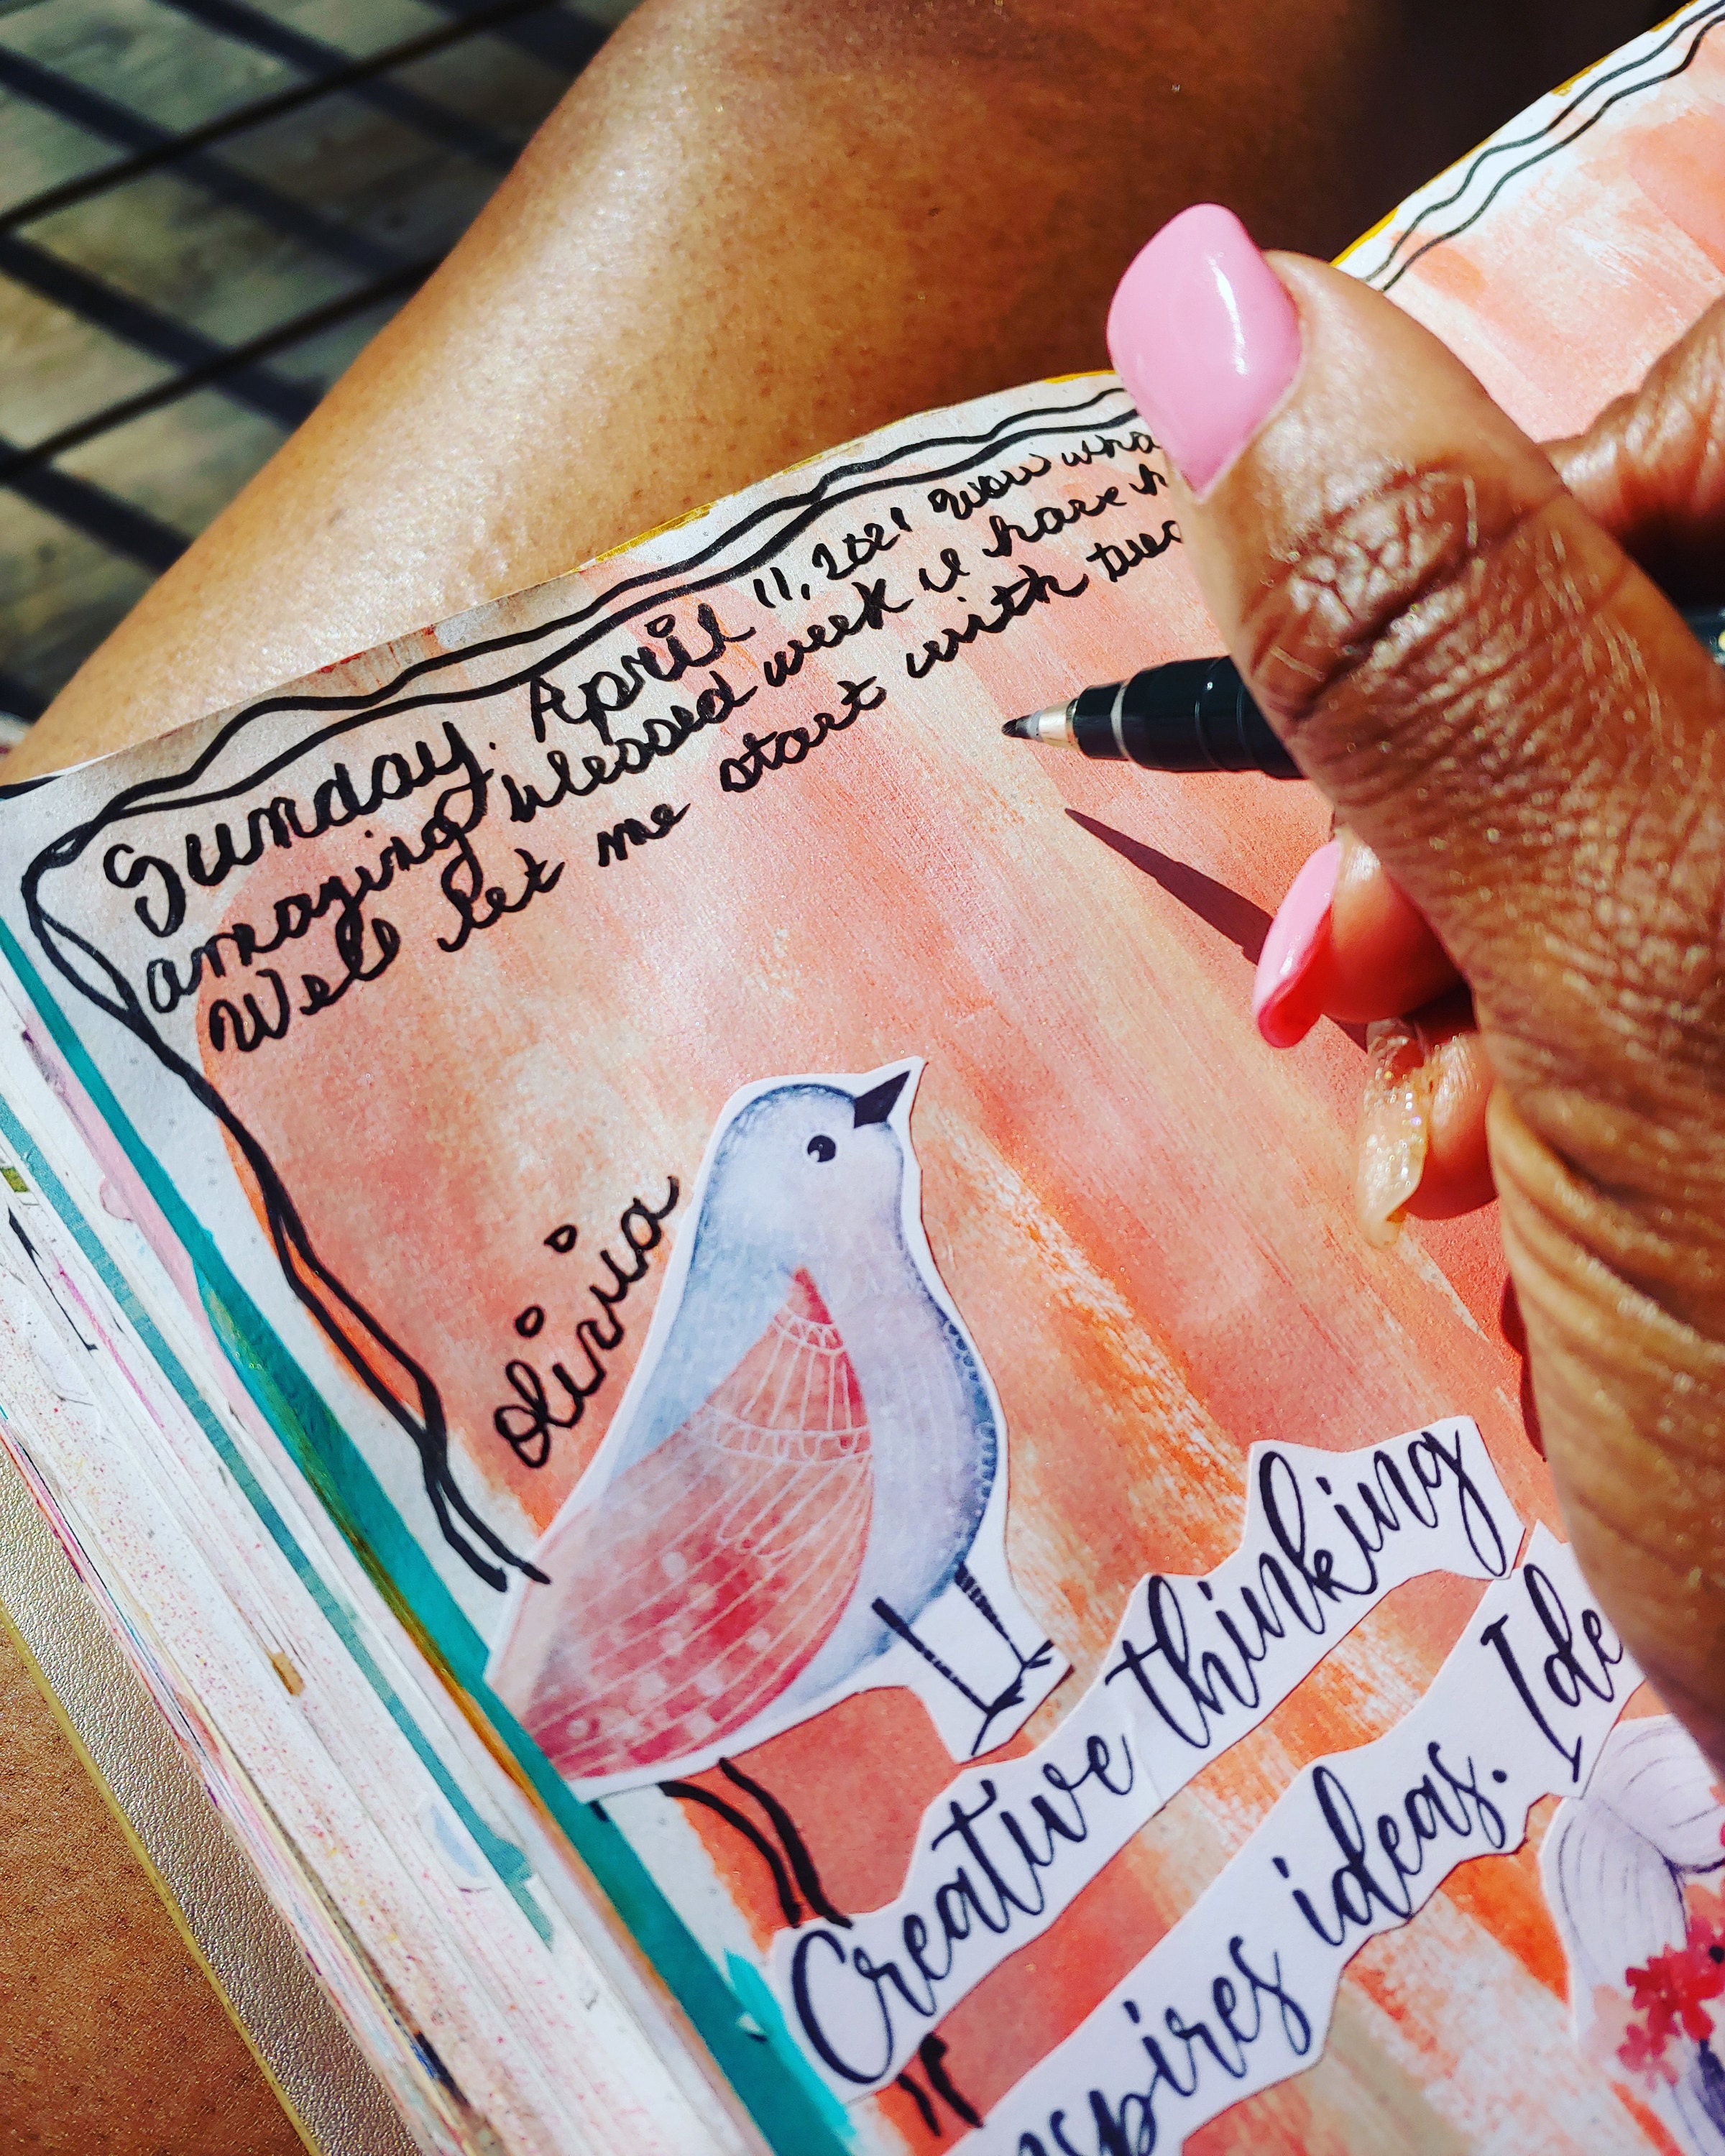 Sunday. April 11, 2021 Wow wha
amazing blessed week I have h
Well let me start with
olivia
Creative thinking
nspires ideas. Ide